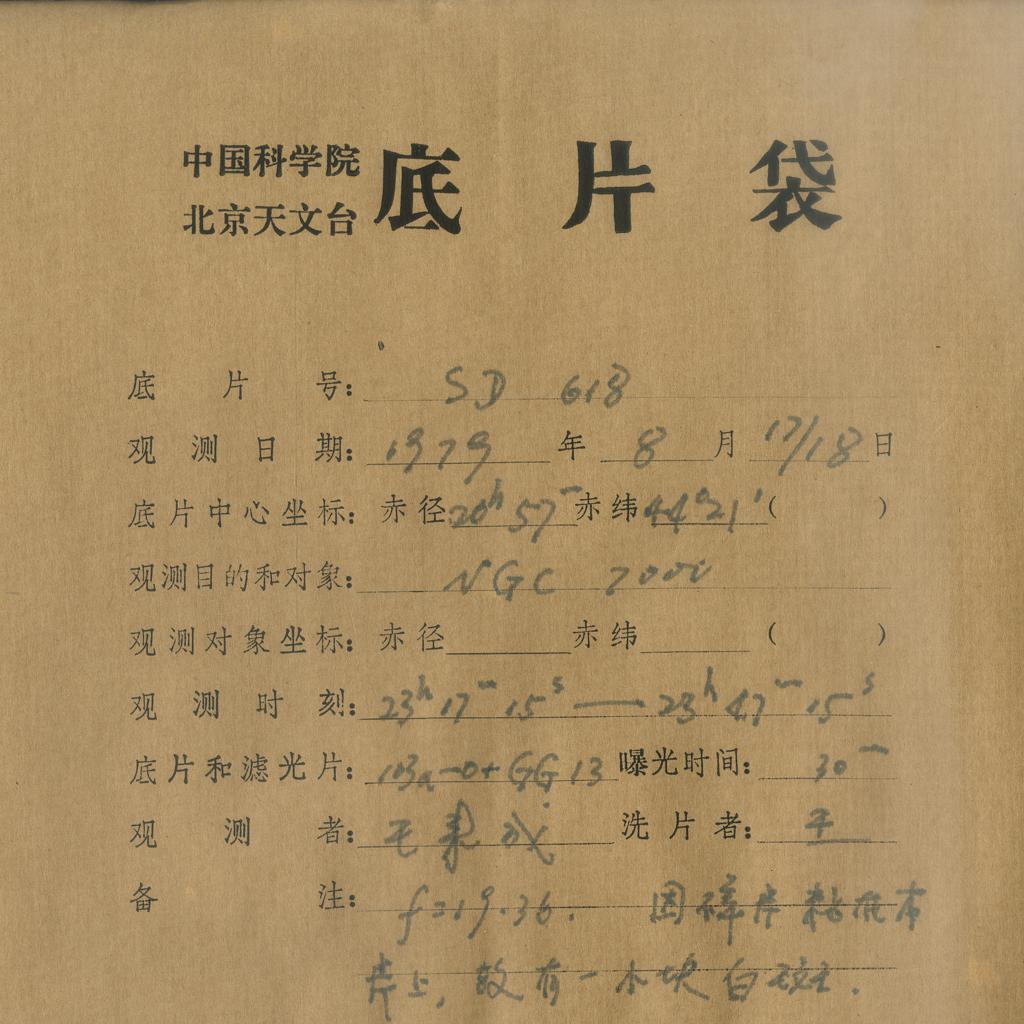 中国科学院
北京天文台
底片袋
底片号: SD 618
观测日期: 1979年 8月 17/18日
底片中心坐标: 赤径 20h 57m 赤纬 44°21' ( )
观测目的和对象: NGC 7000
观测对象坐标: 赤径 赤纬 ( )
观测时刻: 23h 17m 15s — 23h 47m 15s
底片和滤光片: 103a-O+GG13 曝光时间: 30m
观测者: 王 成 洗片者: 王
备注: f=19.36. 因碎片粘在本
片上, 故有一小块白斑.